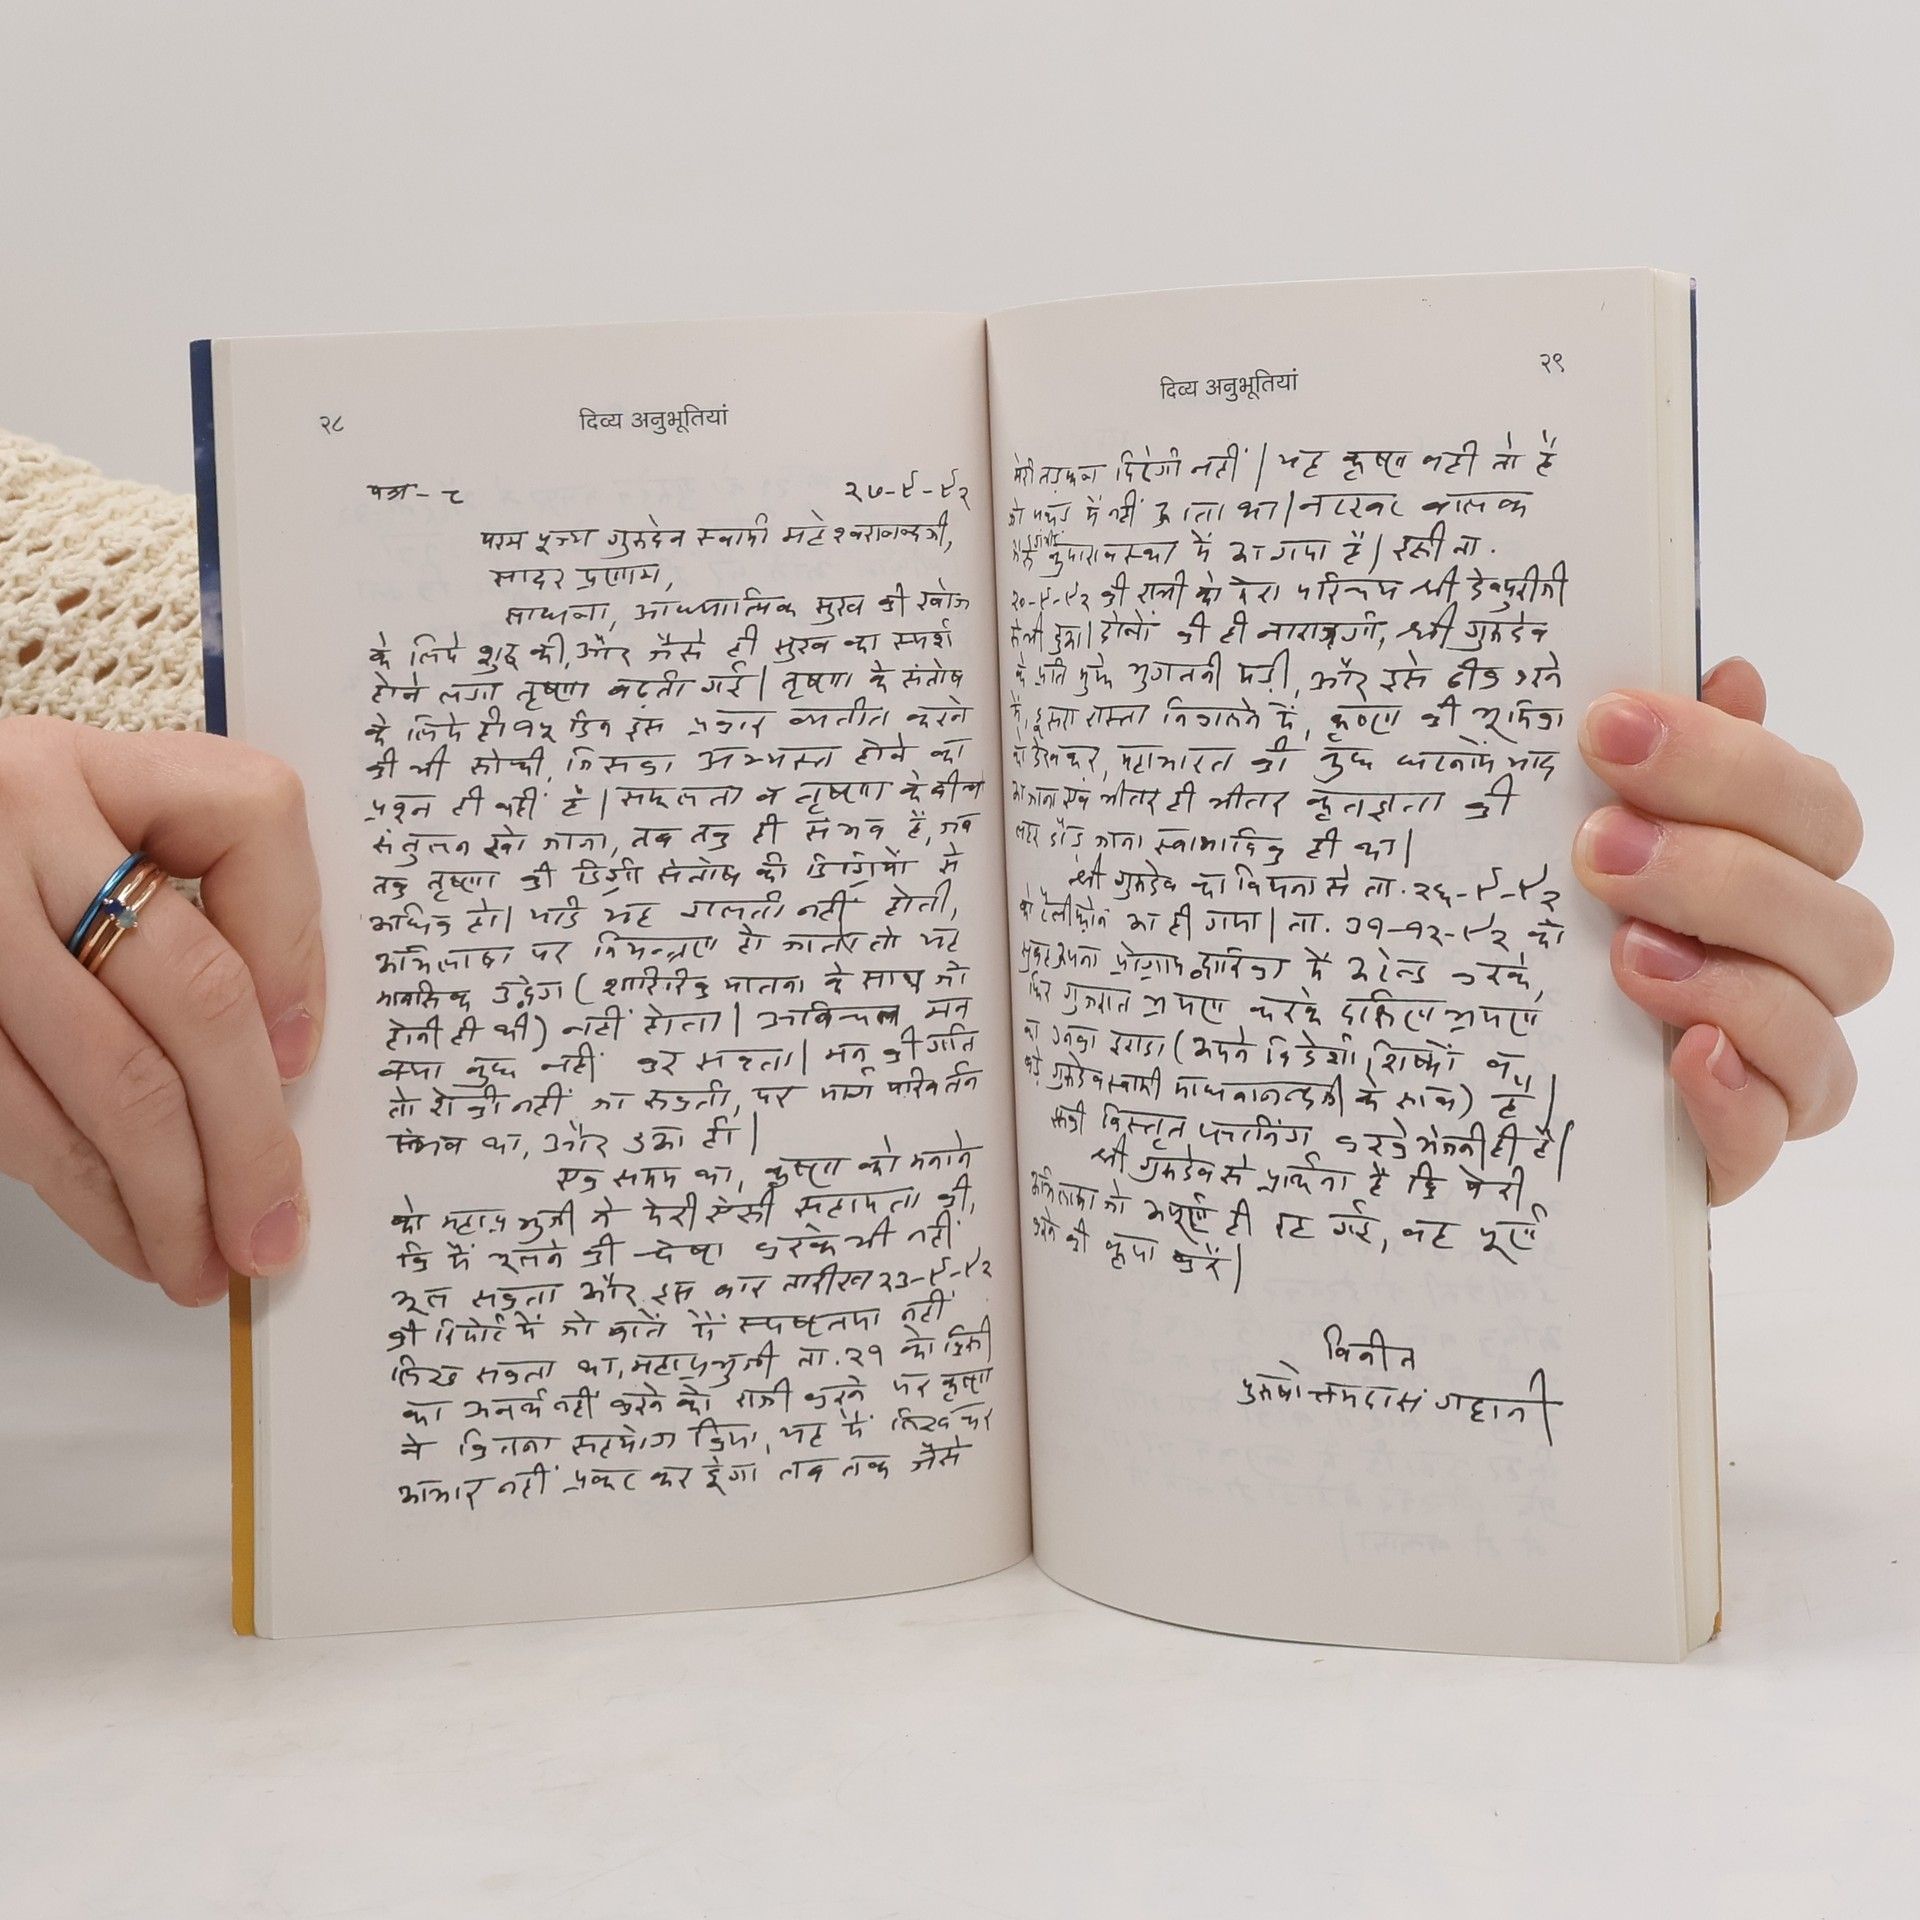 २८
दिव्य अनुभूतियां
पत्र - ८ २७-९-९२
परम पूज्य गुरुदेव स्वामी महेश्वरानन्दजी,
सादर प्रणाम,
साधना, आध्यात्मिक सुख की खोज
के लिये शुरू की, और जैसे ही सुख का स्पर्श
होने लगा तृष्णा बढ़ती गई। तृष्णा के संतोष
के लिये ही १५ दिन इस प्रकार व्यतीत करने
की भी सोची, जिसका अभ्यस्त होने का
प्रश्न ही नहीं है। सफलता व तृष्णा के बीच
संतुलन रखे जाना, तब तक ही संभव है, जब
तक तृष्णा की डिग्री संतोष की डिग्रियों से
अधिक हो। यदि यह गलती नहीं होती,
अभिलाषा पर नियन्त्रण हो जाता तो यह
मानसिक उद्वेग (शारिरिक यातना के साथ जो
होनी ही थी) नहीं होता। अविचल मन
क्या कुछ नहीं कर सकता। मन की गति
तो रोकी नहीं जा सकती, पर मार्ग परिवर्तन
संभव था, और हुआ ही।
एक समय था, कृष्ण को मनाने
को महाप्रभुजी ने मेरी ऐसी सहायता की,
कि मैं भूलने की चेष्टा करके भी नहीं
भूल सकता और इस बार तारीख २३-९-९२
की रिपोर्ट में जो बातें मैं स्पष्टतया नहीं
लिख सकता था, महाप्रभुजी ता. २१ को किसी
का अनर्थ नहीं करने को राजी करने पर कृष्ण
ने कितना सहयोग दिया, यह मैं लिख कर
आभार नहीं प्रकट कर दूंगा तब तक जैसे
२९
दिव्य अनुभूतियां
मेरी तड़फन मिटेगी नहीं। यह कृष्ण वही तो है
जो पकड़ में नहीं आता था। नटखट बालक
कुमारावस्था में आ गया है। इसी ता.
२०-९-९२ की रात्री को मेरा परिचय श्री देवपुरीजी
से भी हुआ। दोनों की ही नाराजगी, श्री गुरुदेव
के प्रति मुझे भुगतनी पड़ी, और इसे ठीक करने
में, दूसरा रास्ता निकालने में, कृष्ण की भूमिका
को देखकर, महाभारत की कुछ घटनायें याद
आ जाना एवं भीतर ही भीतर कृतज्ञता की
लहर दौड़ जाना स्वाभाविक ही था।
श्री गुरुदेव का वियना से ता. २६-९-९२
को टेलीफोन आ ही गया। ता. ३१-१२-९२ को
अपना प्रोग्राम द्वारिका में अटेन्ड करके,
फिर गुजरात भ्रमण करके दक्षिण भ्रमण
का उनका इरादा (अपने विदेशी शिष्यों व
बड़े गुरुदेव स्वामी माधवानन्दजी के साथ) है।
विस्तृत प्लानिंग करके भेजनी ही है।
श्री गुरुदेव से प्रार्थना है कि मेरी
अभिलाषा जो अपूर्ण ही रह गई, वह पूर्ण
करने की कृपा करें।
विनीत
पुरुषोत्तमदास गहानी